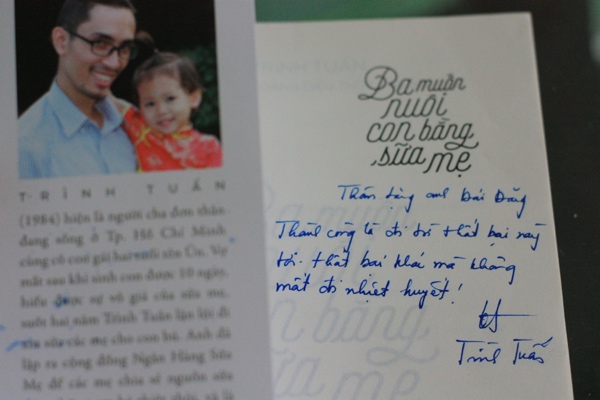 TRÌNH TUẤN
(1984) hiện là người cha đơn thân
đang sống ở Tp. Hồ Chí Minh
cùng cô con gái hai tuổi tên Ún. Vợ
mất sau khi sinh con được 10 ngày,
hiểu được sự vô giá của sữa mẹ,
suốt hai năm Trình Tuấn lặn lội đi
xin sữa các mẹ cho con bú. Anh đã
lập ra cộng đồng Ngân Hàng Sữa
Mẹ để các mẹ chia sẻ nguồn sữa
Ba muốn
nuôi
con bằng
sữa mẹ
Thân tặng anh Đài Đăng
Thành công là đi từ thất bại này
tới thất bại khác mà không
mất đi nhiệt huyết!
Trình Tuấn
Ba muốn
con bằng
sữa mẹ